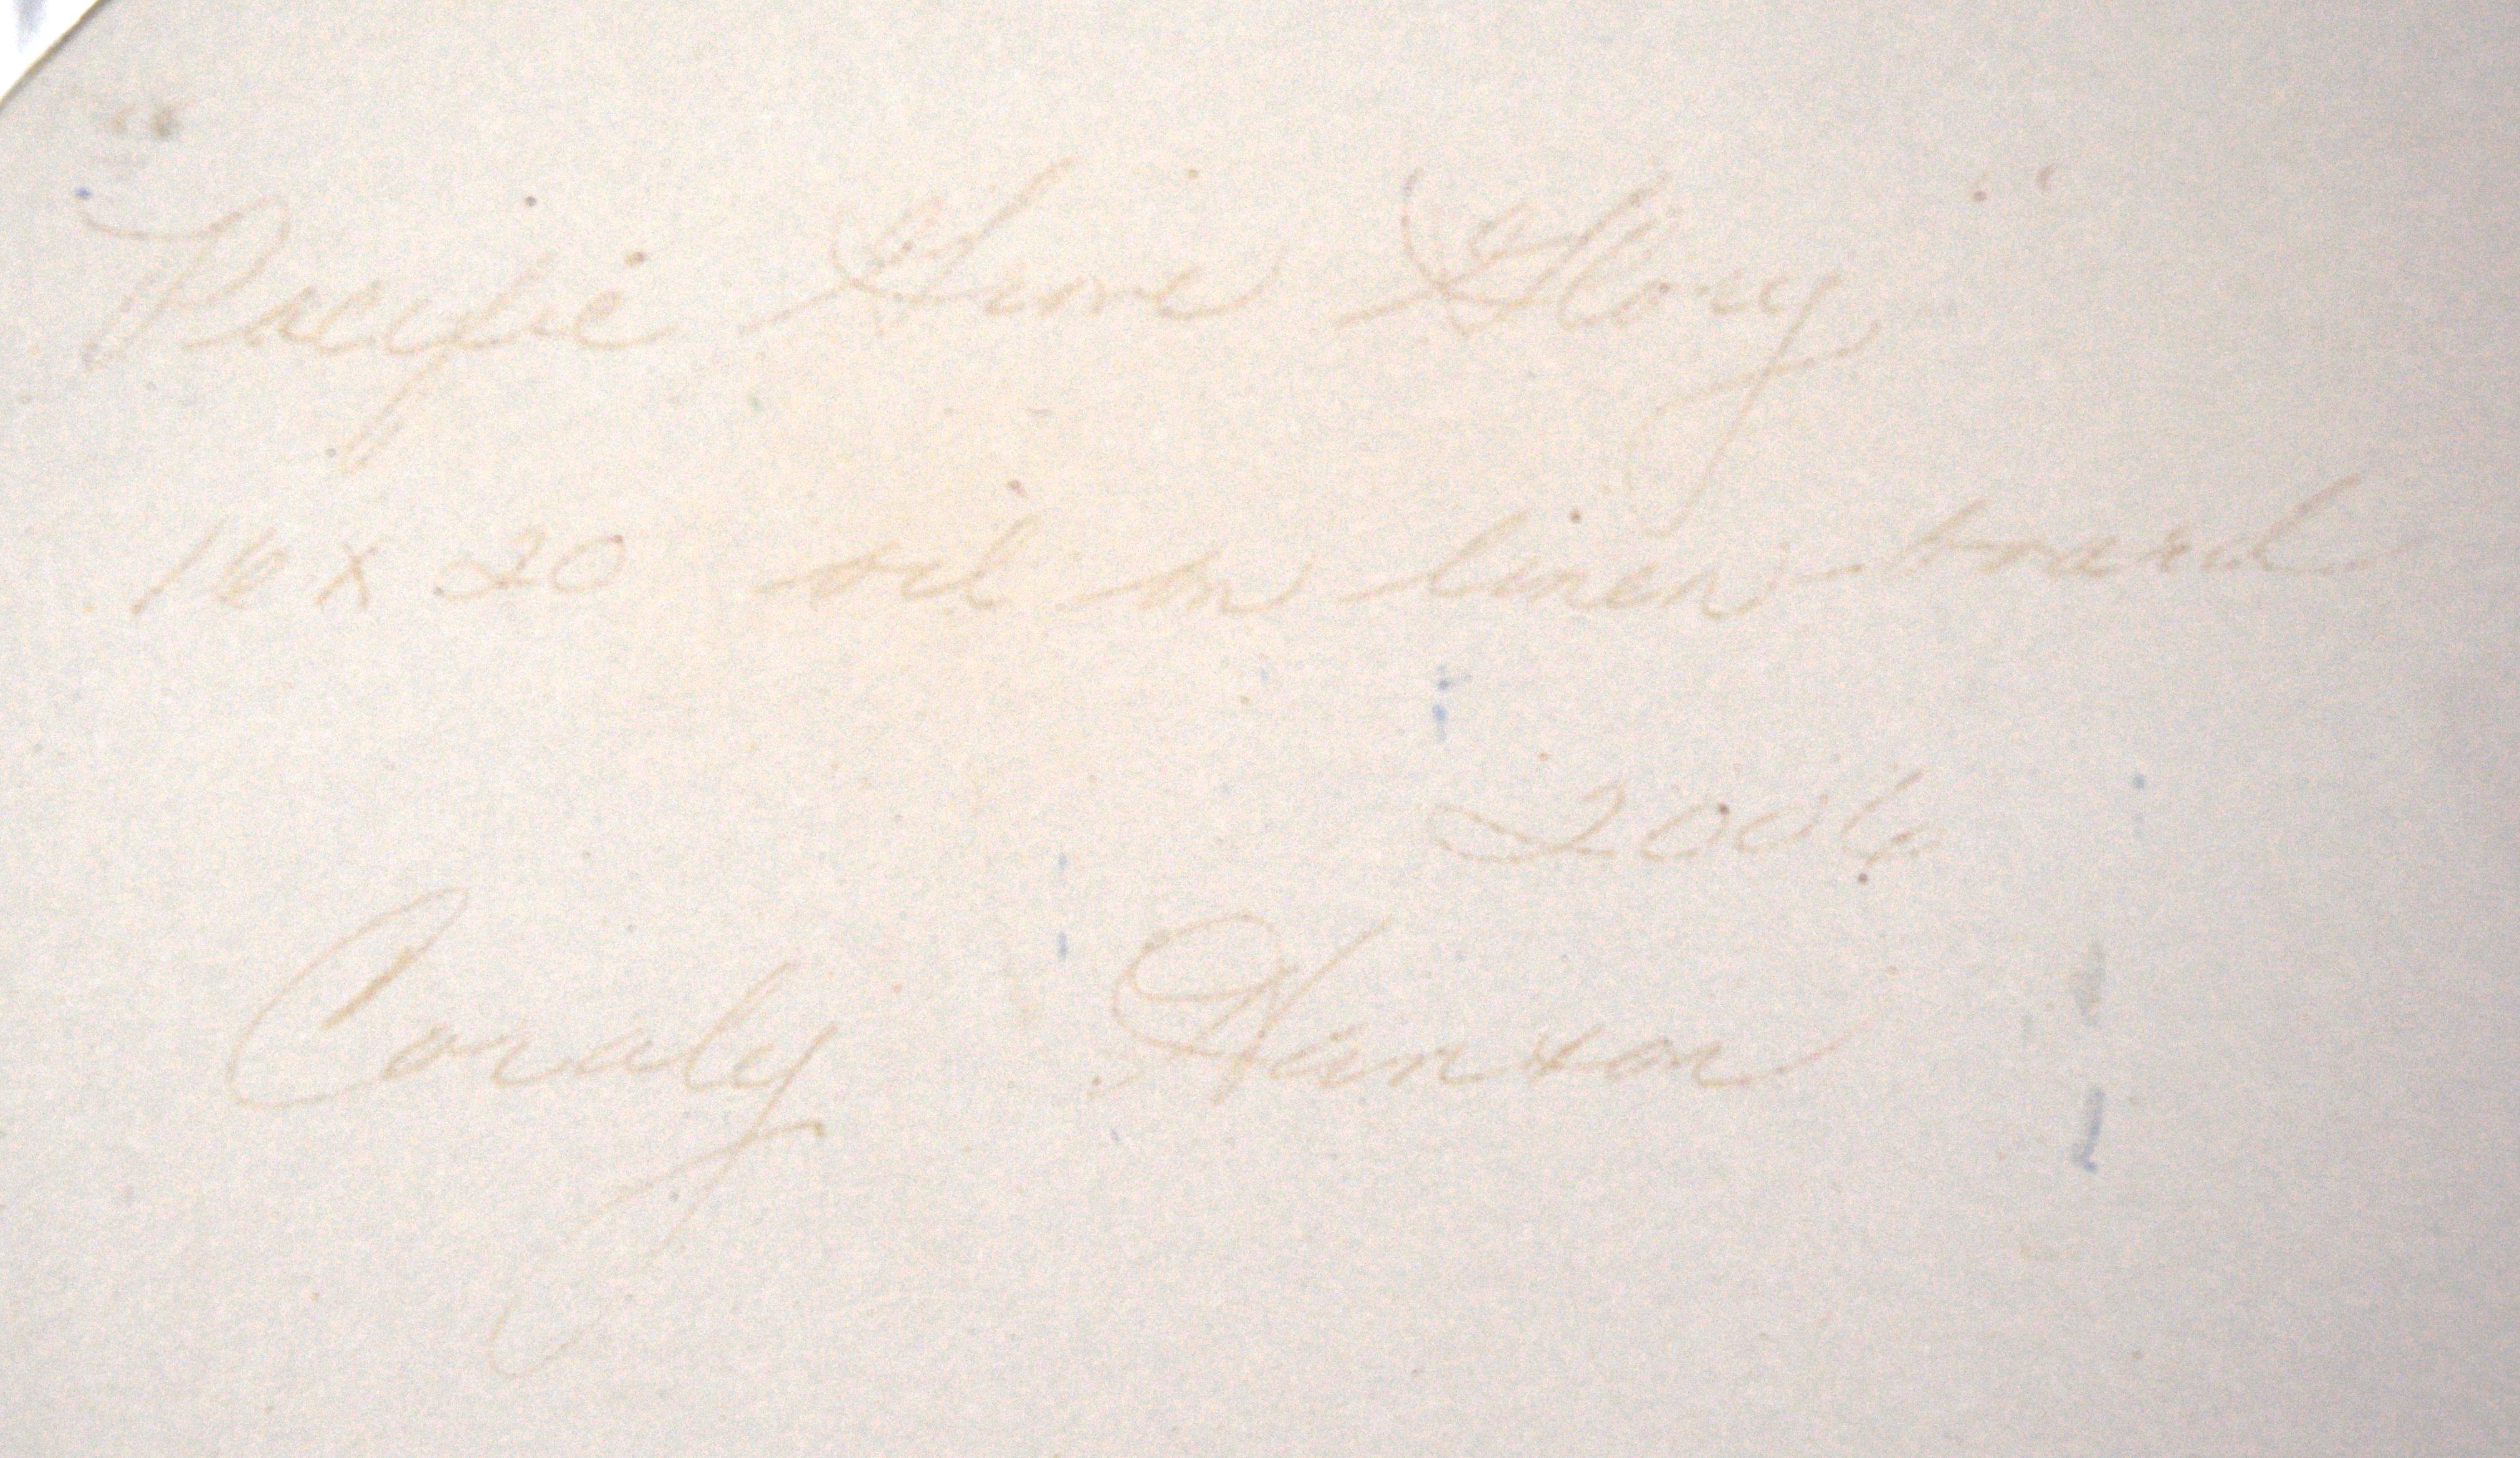 "Pacific Glory"
16 x 20 oil on linen board
2006
Coraly Hanson